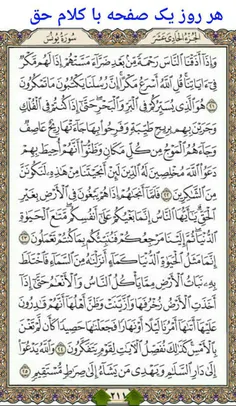 هر روز یک صفحه با کلام حق
الجزء الحادي عشر
سورة يونس
وَإِذَا أَذَقْنَا النَّاسَ رَحْمَةً مِّنْ بَعْدِ ضَرَّاءَ مَسَّتْهُمْ إِذَا لَهُم مَّكْرٌ
فِي آيَاتِنَا قُلِ اللَّهُ أَسْرَعُ مَكْرًا إِنَّ رُسُلَنَا يَكْتُبُونَ مَا تَمْكُرُونَ
﴿٢١﴾ هُوَ الَّذِي يُسَيِّرُكُمْ فِي الْبَرِّ وَالْبَحْرِ حَتَّى إِذَا كُنتُمْ فِي الْفُلْكِ
وَجَرَيْنَ بِهِم بِرِيحٍ طَيِّبَةٍ وَفَرِحُوا بِهَا جَاءَتْهَا رِيحٌ عَاصِفٌ
وَجَاءَهُمُ الْمَوْجُ مِن كُلِّ مَكَانٍ وَظَنُّوا أَنَّهُمْ أُحِيطَ بِهِمْ
دَعَوُا اللَّهَ مُخْلِصِينَ لَهُ الدِّينَ لَئِنْ أَنجَيْتَنَا مِنْ هَٰذِهِ لَنَكُونَنَّ
مِنَ الشَّاكِرِينَ ﴿٢٢﴾ فَلَمَّا أَنجَاهُمْ إِذَا هُمْ يَبْغُونَ فِي الْأَرْضِ بِغَيْرِ
الْحَقِّ يَا أَيُّهَا النَّاسُ إِنَّمَا بَغْيُكُمْ عَلَى أَنفُسِكُم مَّتَاعَ الْحَيَوٰةِ
الدُّنْيَا ثُمَّ إِلَيْنَا مَرْجِعُكُمْ فَنُنَبِّئُكُم بِمَا كُنتُمْ تَعْمَلُونَ ﴿٢٣﴾
إِنَّمَا مَثَلُ الْحَيَوٰةِ الدُّنْيَا كَمَاءٍ أَنزَلْنَاهُ مِنَ السَّمَاءِ فَاخْتَلَطَ
بِهِ نَبَاتُ الْأَرْضِ مِمَّا يَأْكُلُ النَّاسُ وَالْأَنْعَامُ حَتَّى إِذَا
أَخَذَتِ الْأَرْضُ زُخْرُفَهَا وَازَّيَّنَتْ وَظَنَّ أَهْلُهَا أَنَّهُمْ قَادِرُونَ
عَلَيْهَا أَتَاهَا أَمْرُنَا لَيْلًا أَوْ نَهَارًا فَجَعَلْنَاهَا حَصِيدًا كَأَن لَّمْ تَغْنَ
بِالْأَمْسِ كَذَٰلِكَ نُفَصِّلُ الْآيَاتِ لِقَوْمٍ يَتَفَكَّرُونَ ﴿٢٤﴾ وَاللَّهُ يَدْعُو
إِلَى دَارِ السَّلَامِ وَيَهْدِي مَن يَشَاءُ إِلَى صِرَاطٍ مُّسْتَقِيمٍ ﴿٢٥﴾
٢١١